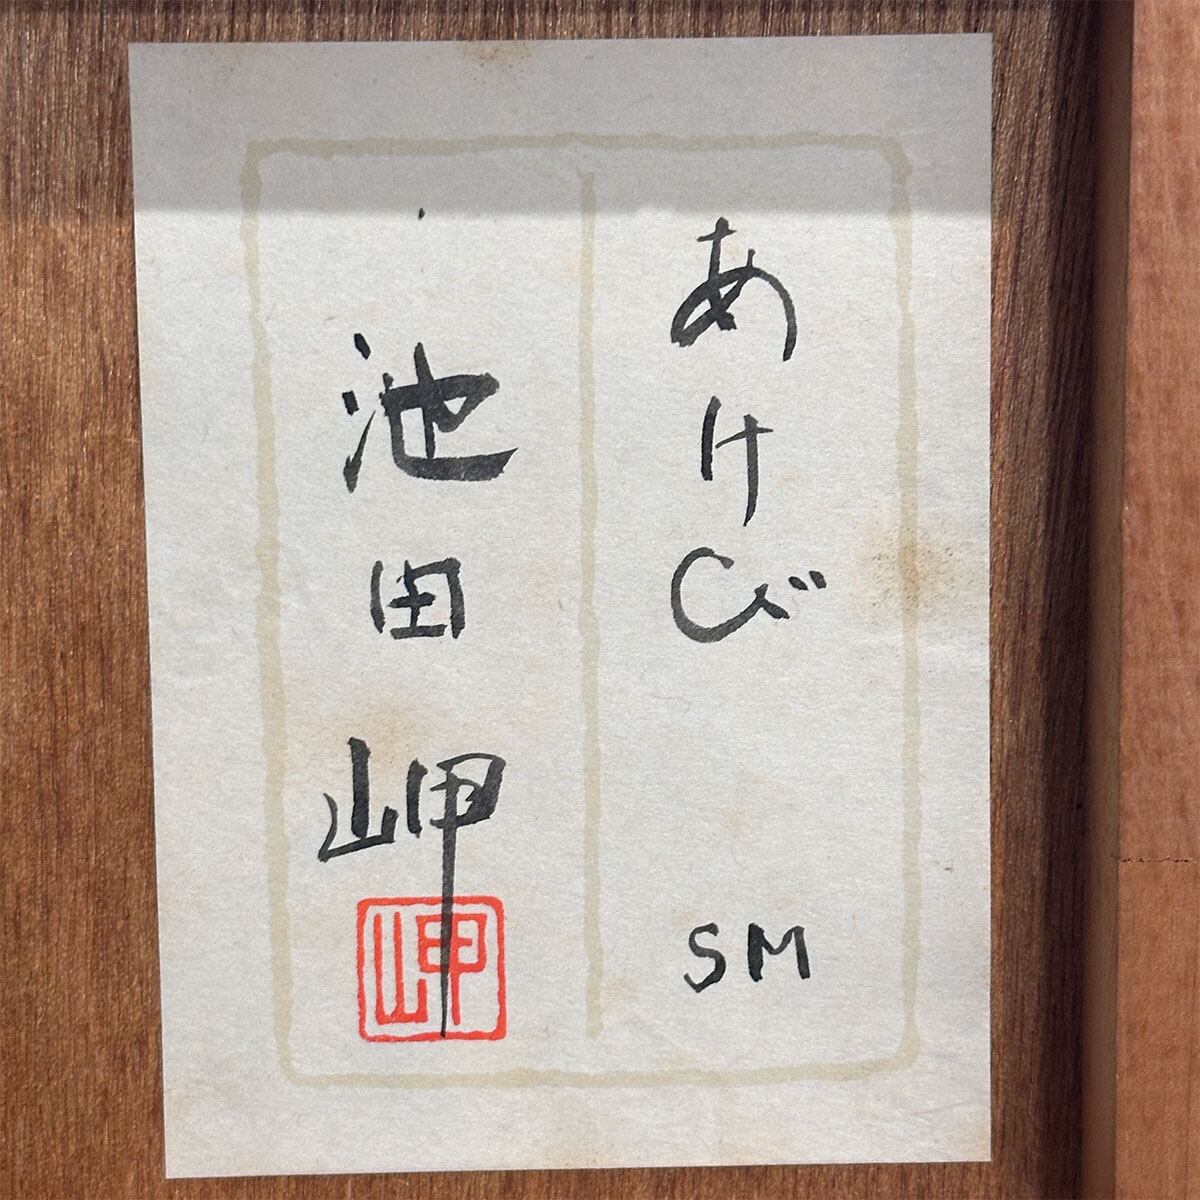 あけび
SM
池田岬
岬